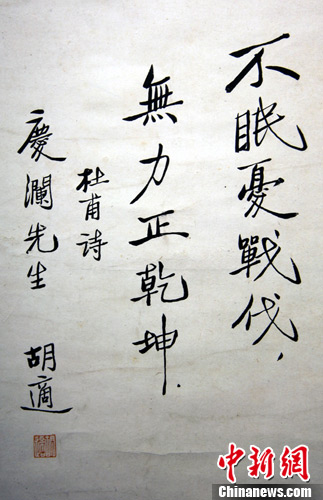 不眠憂戰伐，
無力正乾坤．
杜甫诗
慶瀾先生
胡適
中新网
Chinanews.com